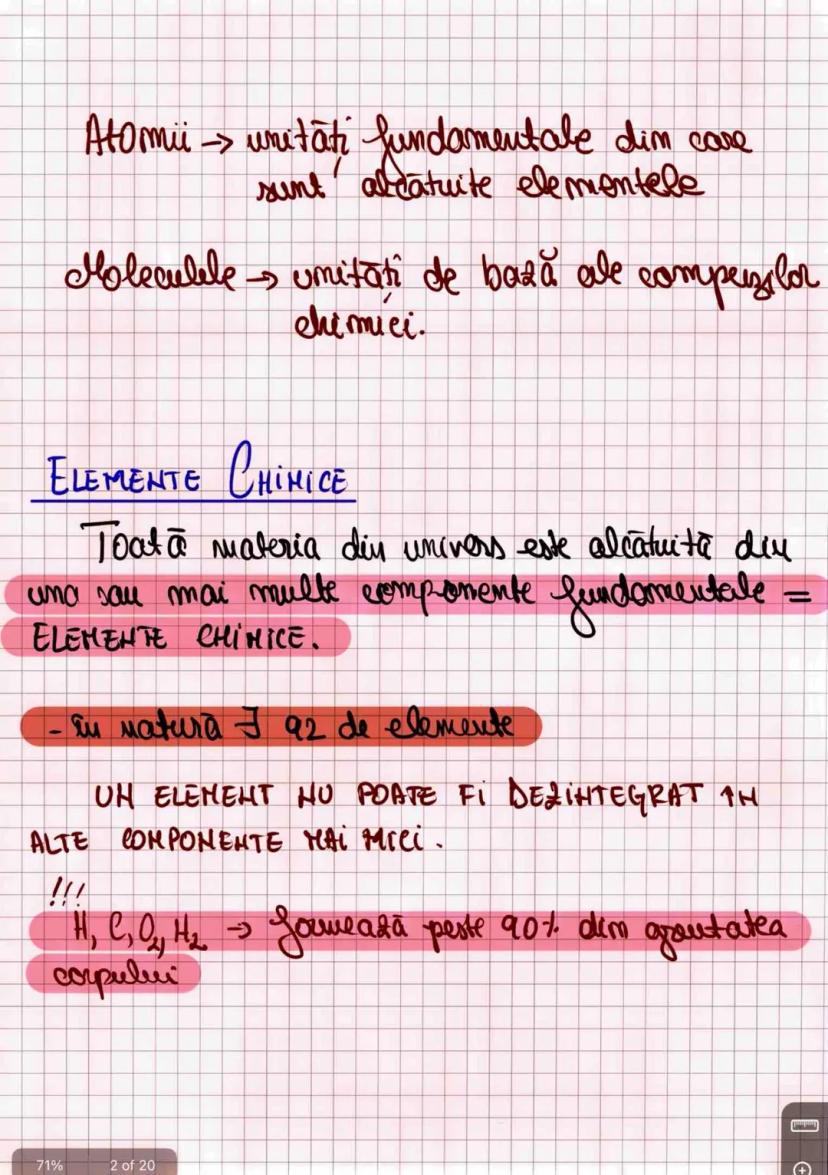 Atomii → unități fundamentale din care
sunt alcătuite elementele
Moleculele → unități de bază ale compușilor
chimici.
ELEMENTE CHIMICE
Toată materia din univers este alcătuită din
una sau mai multe componente fundamentale =
ELEMENTE CHIMICE.
- în natură ∃ 92 de elemente
UN ELEMENT NU POATE FI DEZINTEGRAT ÎN
ALTE COMPONENTE MAI MICI.
!!!
H, C, O₂, H₂ → formează peste 90% din greutatea
corpului
71% 2 of 20